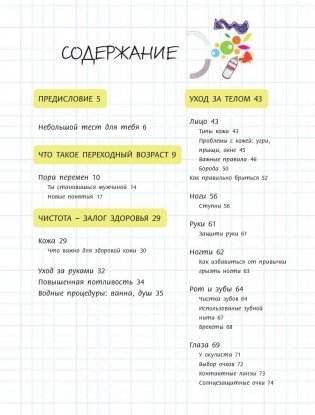 СОДЕРЖАНИЕ
ПРЕДИСЛОВИЕ 5
Небольшой тест для тебя 6
ЧТО ТАКОЕ ПЕРЕХОДНЫЙ ВОЗРАСТ 9
Пора перемен 10
Ты становишься мужчиной 14
Новые понятия 17
ЧИСТОТА – ЗАЛОГ ЗДОРОВЬЯ 29
Кожа 29
Что важно для здоровой кожи 30
Уход за руками 32
Повышенная потливость 34
Водные процедуры: ванна, душ 35
УХОД ЗА ТЕЛОМ 43
Лицо 43
Типы кожи 43
Проблемы с кожей: угри,
прыщи, акне 45
Важные правила 46
Борода 50
Как правильно бриться 52
Ноги 56
Ступни 56
Руки 61
Защити руки 61
Ногти 62
Как избавиться от привычки
грызть ногти 63
Рот и зубы 64
Чистка зубов 64
Использование зубной
нити 67
Брекеты 68
Глаза 69
У окулиста 71
Выбор очков 72
Контактные линзы 73
Солнцезащитные очки 74